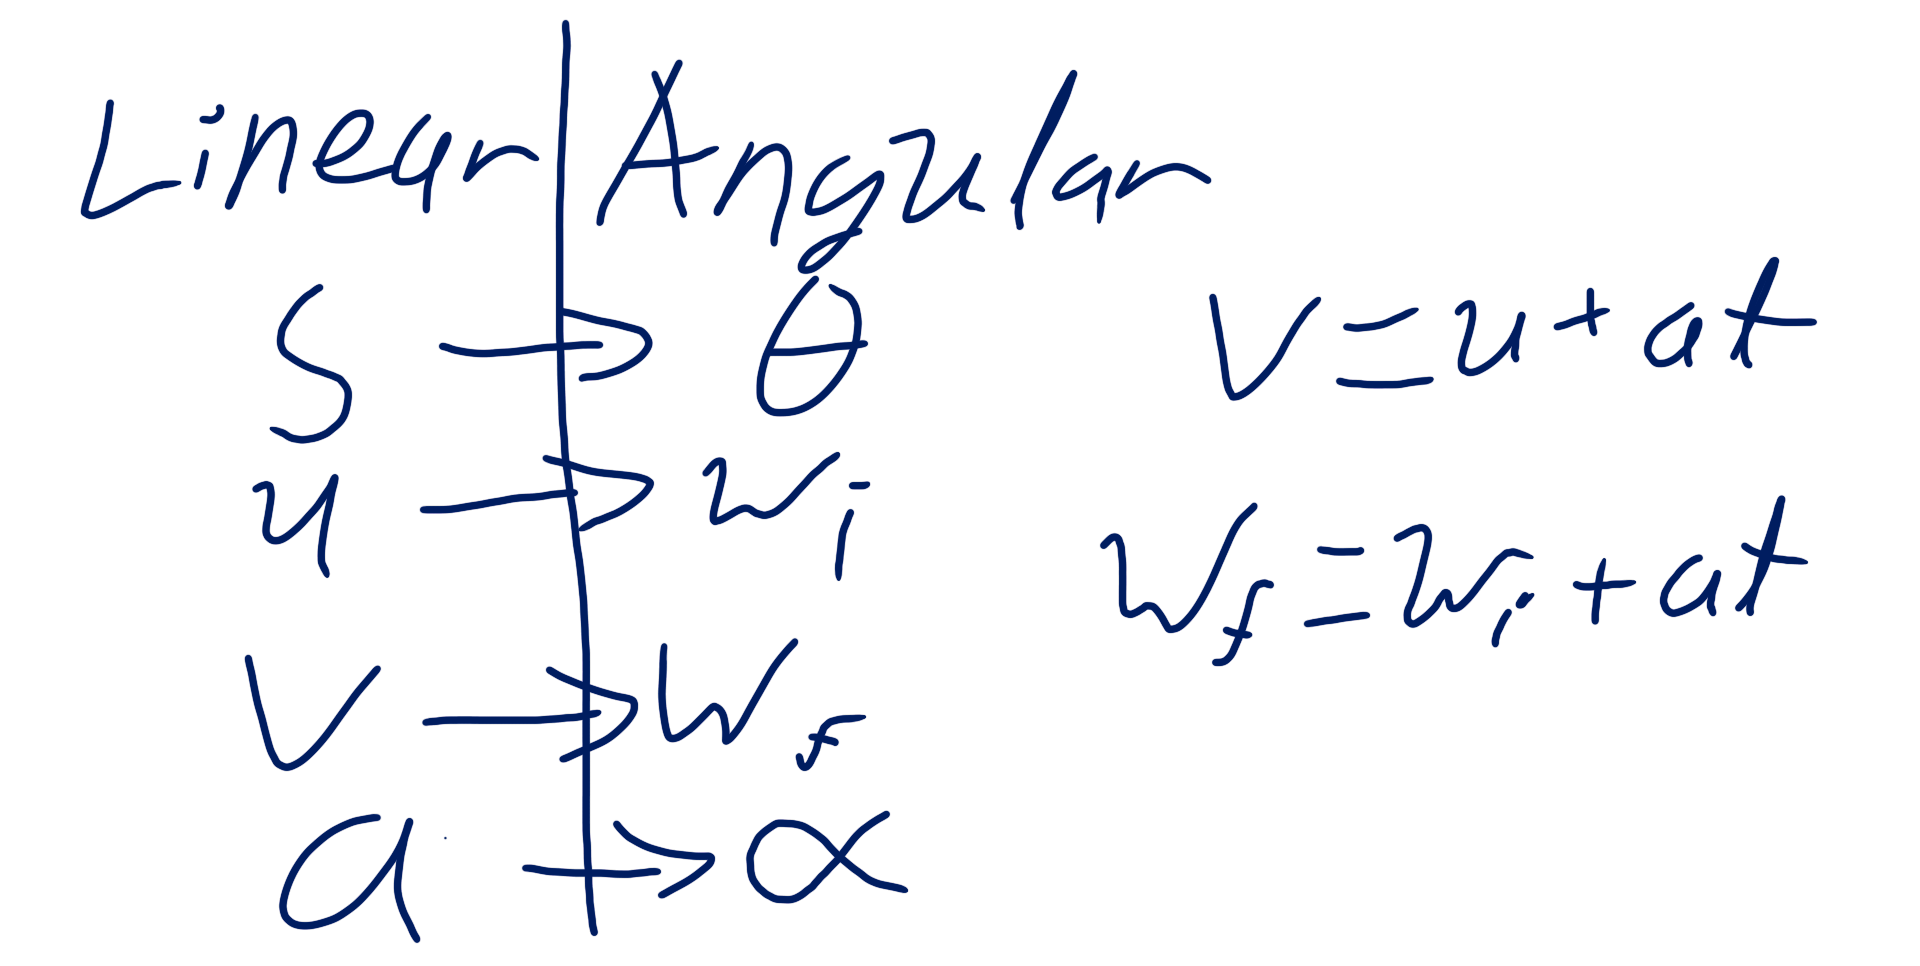 Linear Angular
S → θ
u → wi
v → wf
a → α
v = u + at
wf = wi + at